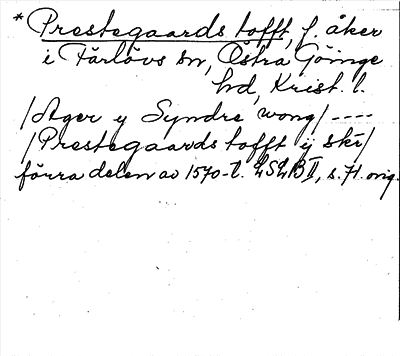 * Prestegaards tofft, f. åker
i Färlövs sn, Östra Göinge
hd, Krist. l.
/Ager y Syndre wong/ ----
/Prestegaards tofft ij skr/
förra delen av 1570-t. LSLB II, s. 71. orig.